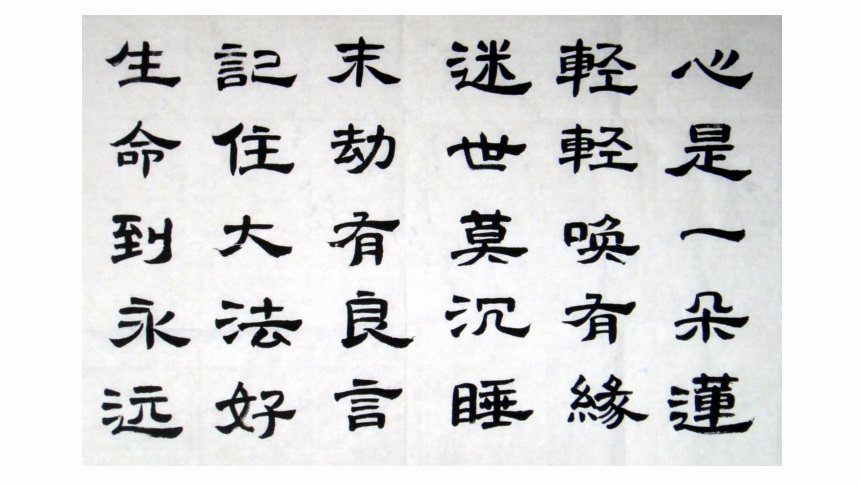 心是一朵蓮
輕輕喚有緣
迷世莫沉睡
末劫有良言
記住大法好
生命到永远